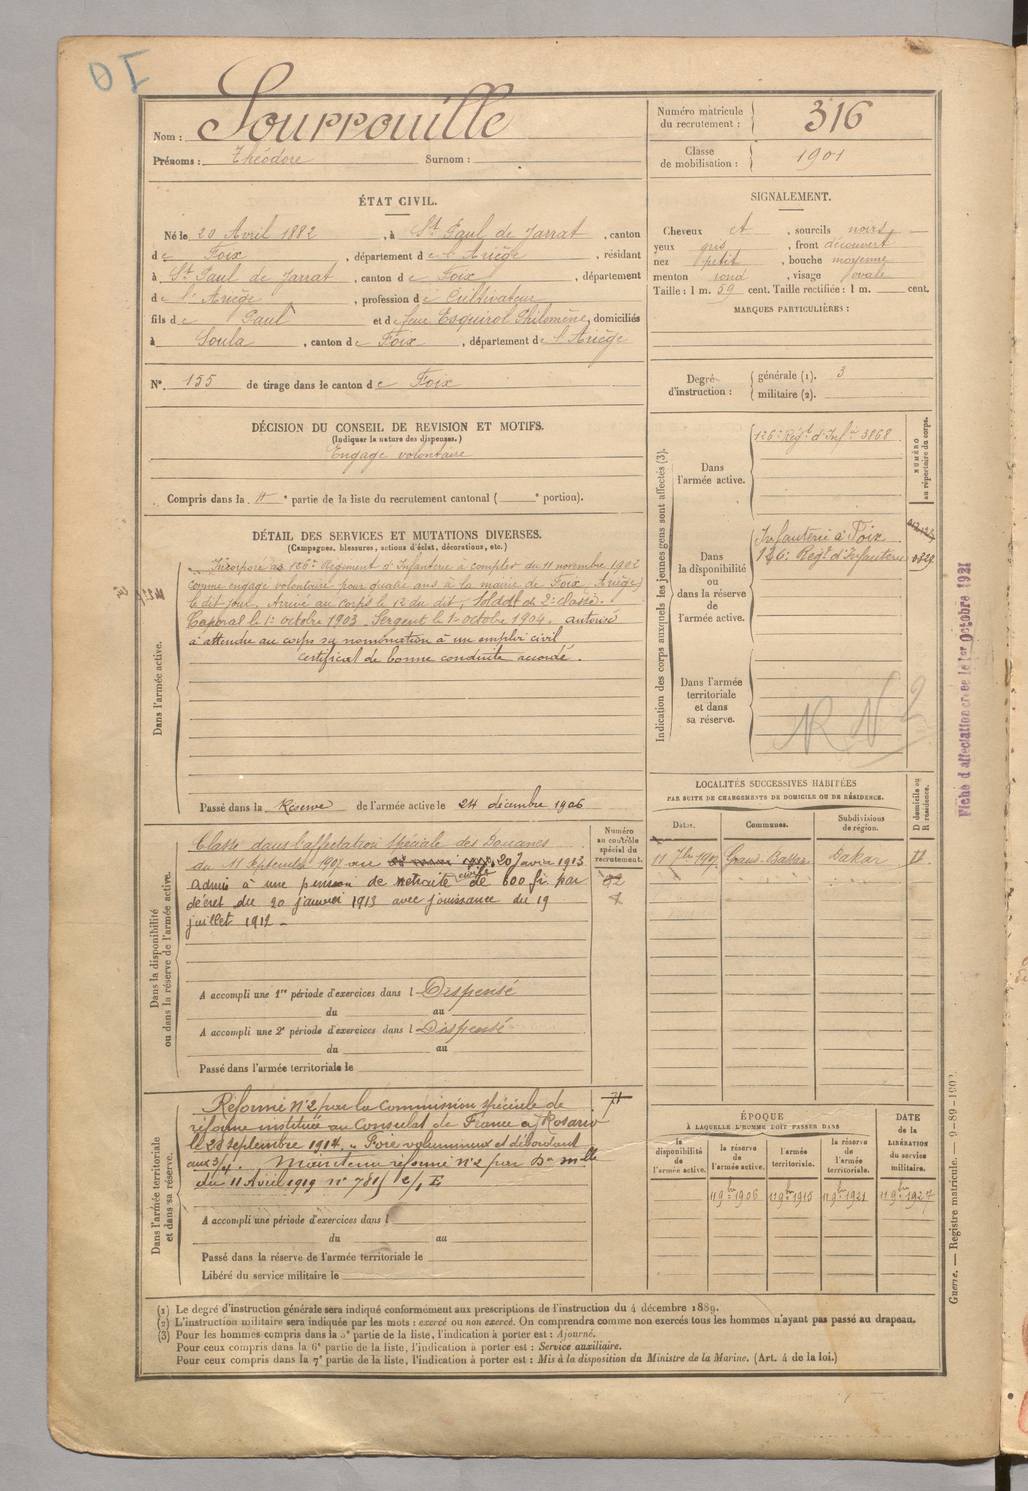 Nom : Sourrouille
Prénoms : Théodore Surnom :
Numéro matricule du recrutement : 316
Classe de mobilisation : 1901
ÉTAT CIVIL.
Né le 20 Avril 1882, à St Paul de Jarrat, canton
de Foix, département de l'Ariège, résidant
à St Paul de Jarrat, canton de Foix, département
de l'Ariège, profession de Cultivateur
fils de Paul et de feue Esquirol Philomène, domiciliés
à Soula, canton de Foix, département de l'Ariège
N°. 155 de tirage dans le canton de Foix
SIGNALEMENT.
Cheveux et, sourcils noirs
yeux gris, front découvert
nez petit, bouche moyenne
menton rond, visage ovale
Taille : 1 m. 59 cent. Taille rectifiée : 1 m. cent.
MARQUES PARTICULIÈRES :
Degré d'instruction : générale (1). 3
militaire (2).
DÉCISION DU CONSEIL DE REVISION ET MOTIFS.
(Indiquer la nature des dispenses.)
Engagé volontaire
Compris dans la partie de la liste du recrutement cantonal ( e portion).
DÉTAIL DES SERVICES ET MUTATIONS DIVERSES.
(Campagnes, blessures, actions d'éclat, décorations, etc.)
Dans l'armée active.
Incorporé au 126e Régiment d'Infanterie à compter du 11 novembre 1902
comme engagé volontaire pour quatre ans à la mairie de Foix (Ariège)
le dit jour. Arrivé au corps le 12 du dit, Soldat de 2e classe.
Caporal le 1er octobre 1903. Sergent le 1er octobre 1904. autorisé
à attendre au corps sa nomination à un emploi civil
certificat de bonne conduite accordé.
Passé dans la Réserve de l'armée active le 24 décembre 1906
Indication des corps auxquels les jeunes gens sont affectés (3).
NUMÉRO au répertoire du corps.
Dans l'armée active.
126e Régt d'Infie 3868
Dans la disponibilité ou dans la réserve de l'armée active.
Infanterie à Foix
126e Régt d'Infanterie
Dans l'armée territoriale et dans sa réserve.
Fiche d'affectation créée le 1er Octobre 1921
LOCALITÉS SUCCESSIVES HABITÉES
PAR SUITE DE CHANGEMENTS DE DOMICILE OU DE RÉSIDENCE.
D domicile ou R résidence.
Dates. Communes. Subdivisions de région.
11 7bre 1907 Grand-Bassam Dakar
Dans la disponibilité ou dans la réserve de l'armée active.
Numéro au contrôle spécial du recrutement.
Classé dans l'affectation spéciale des Douanes
du 11 Septembre 1907 au 20 Janvier 1913
Admis à une pension de retraite civile de 600 fr par
décret du 20 janvier 1913 avec jouissance du 19
juillet 1912 -
A accompli une 1re période d'exercices dans l Dispensé
du au
A accompli une 2e période d'exercices dans l Dispensé
du au
Passé dans l'armée territoriale le
Dans l'armée territoriale et dans sa réserve.
71
Réformé N°2 par la Commission spéciale de
réforme instituée au Consulat de France à Rosario
le 23 septembre 1914.
Maintenu réformé n°2 par
du 11 Avril 1919
A accompli une période d'exercices dans l
du au
Passé dans la réserve de l'armée territoriale le
Libéré du service militaire le
ÉPOQUE
À LAQUELLE L'HOMME DOIT PASSER DANS
la disponibilité de l'armée active.
la réserve de l'armée active.
l'armée territoriale.
la réserve de l'armée territoriale.
DATE de la LIBÉRATION du service militaire.
11 9bre 1906 11 9bre 1921 11 9bre 1927
(1) Le degré d'instruction générale sera indiqué conformément aux prescriptions de l'instruction du 4 décembre 1889.
(2) L'instruction militaire sera indiquée par les mots : exercé ou non exercé. On comprendra comme non exercés tous les hommes n'ayant pas passé au drapeau.
(3) Pour les hommes compris dans la 5e partie de la liste, l'indication à porter est : Ajourné.
Pour ceux compris dans la 6e partie de la liste, l'indication à porter est : Service auxiliaire.
Pour ceux compris dans la 7e partie de la liste, l'indication à porter est : Mis à la disposition du Ministre de la Marine. (Art. 4 de la loi.)
Guerre. — Registre matricule. — 9-89-1902.